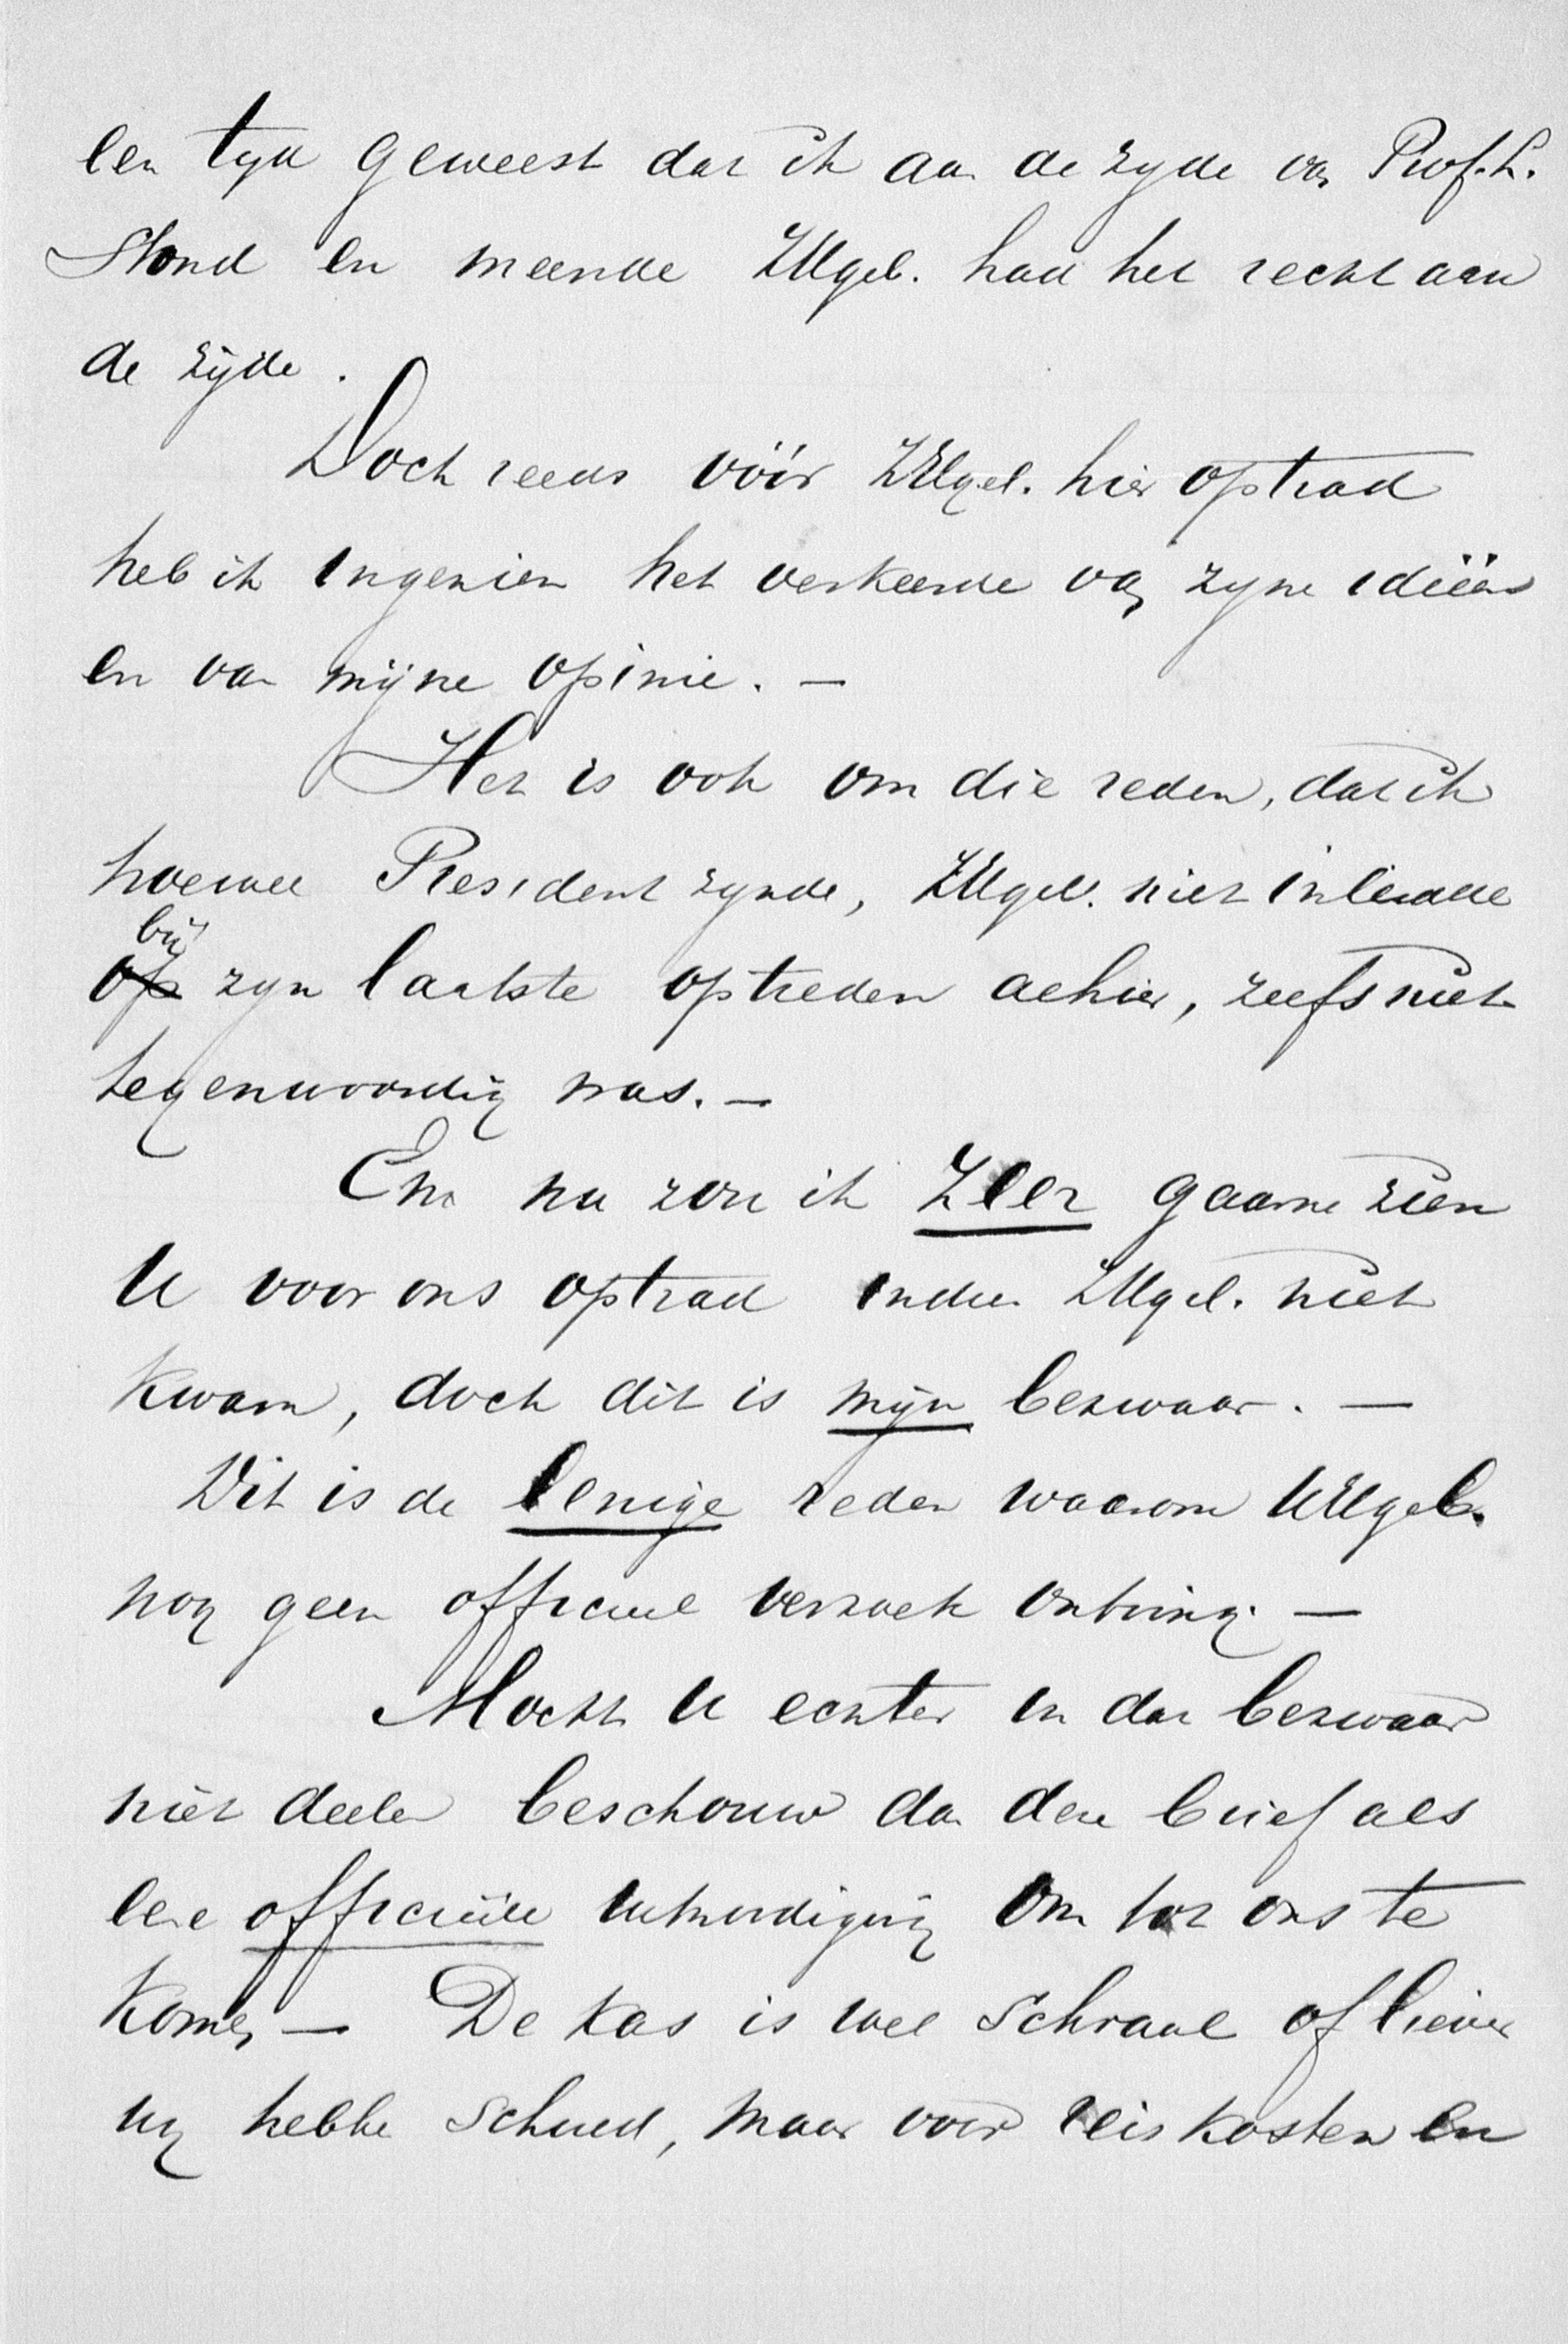 een tijd geweest dat ik aan de zijde van Prof. L.
stond en meende ZEdgel. had het recht aan
de zijde.
Doch reeds vóór ZEdgel. hier optrad
heb ik ingezien het verkeerde van zijne ideëen
en van mijne opinie. —
Het is ook om die reden, dat ik
hoewel President zijnde, ZEdgel. niet inleidde
op bij zijn laatste optreden alhier, zelfs niet
tegenwoordig was. —
En nu zou ik zeer gaarne zien
U voor ons optrad indien ZEdgel. niet
kwam, doch dit is mijn bezwaar. —
Dit is de eenige reden waarom UEdgel.
nog geen officieel verzoek ontving. —
Mocht U echter in dat bezwaar
niet deelen beschouw dan deze brief als
eene officieële uitnoodiging om tot ons te
komen — De kas is wel schraal of liever
wij hebben schuld, maar voor reiskosten en